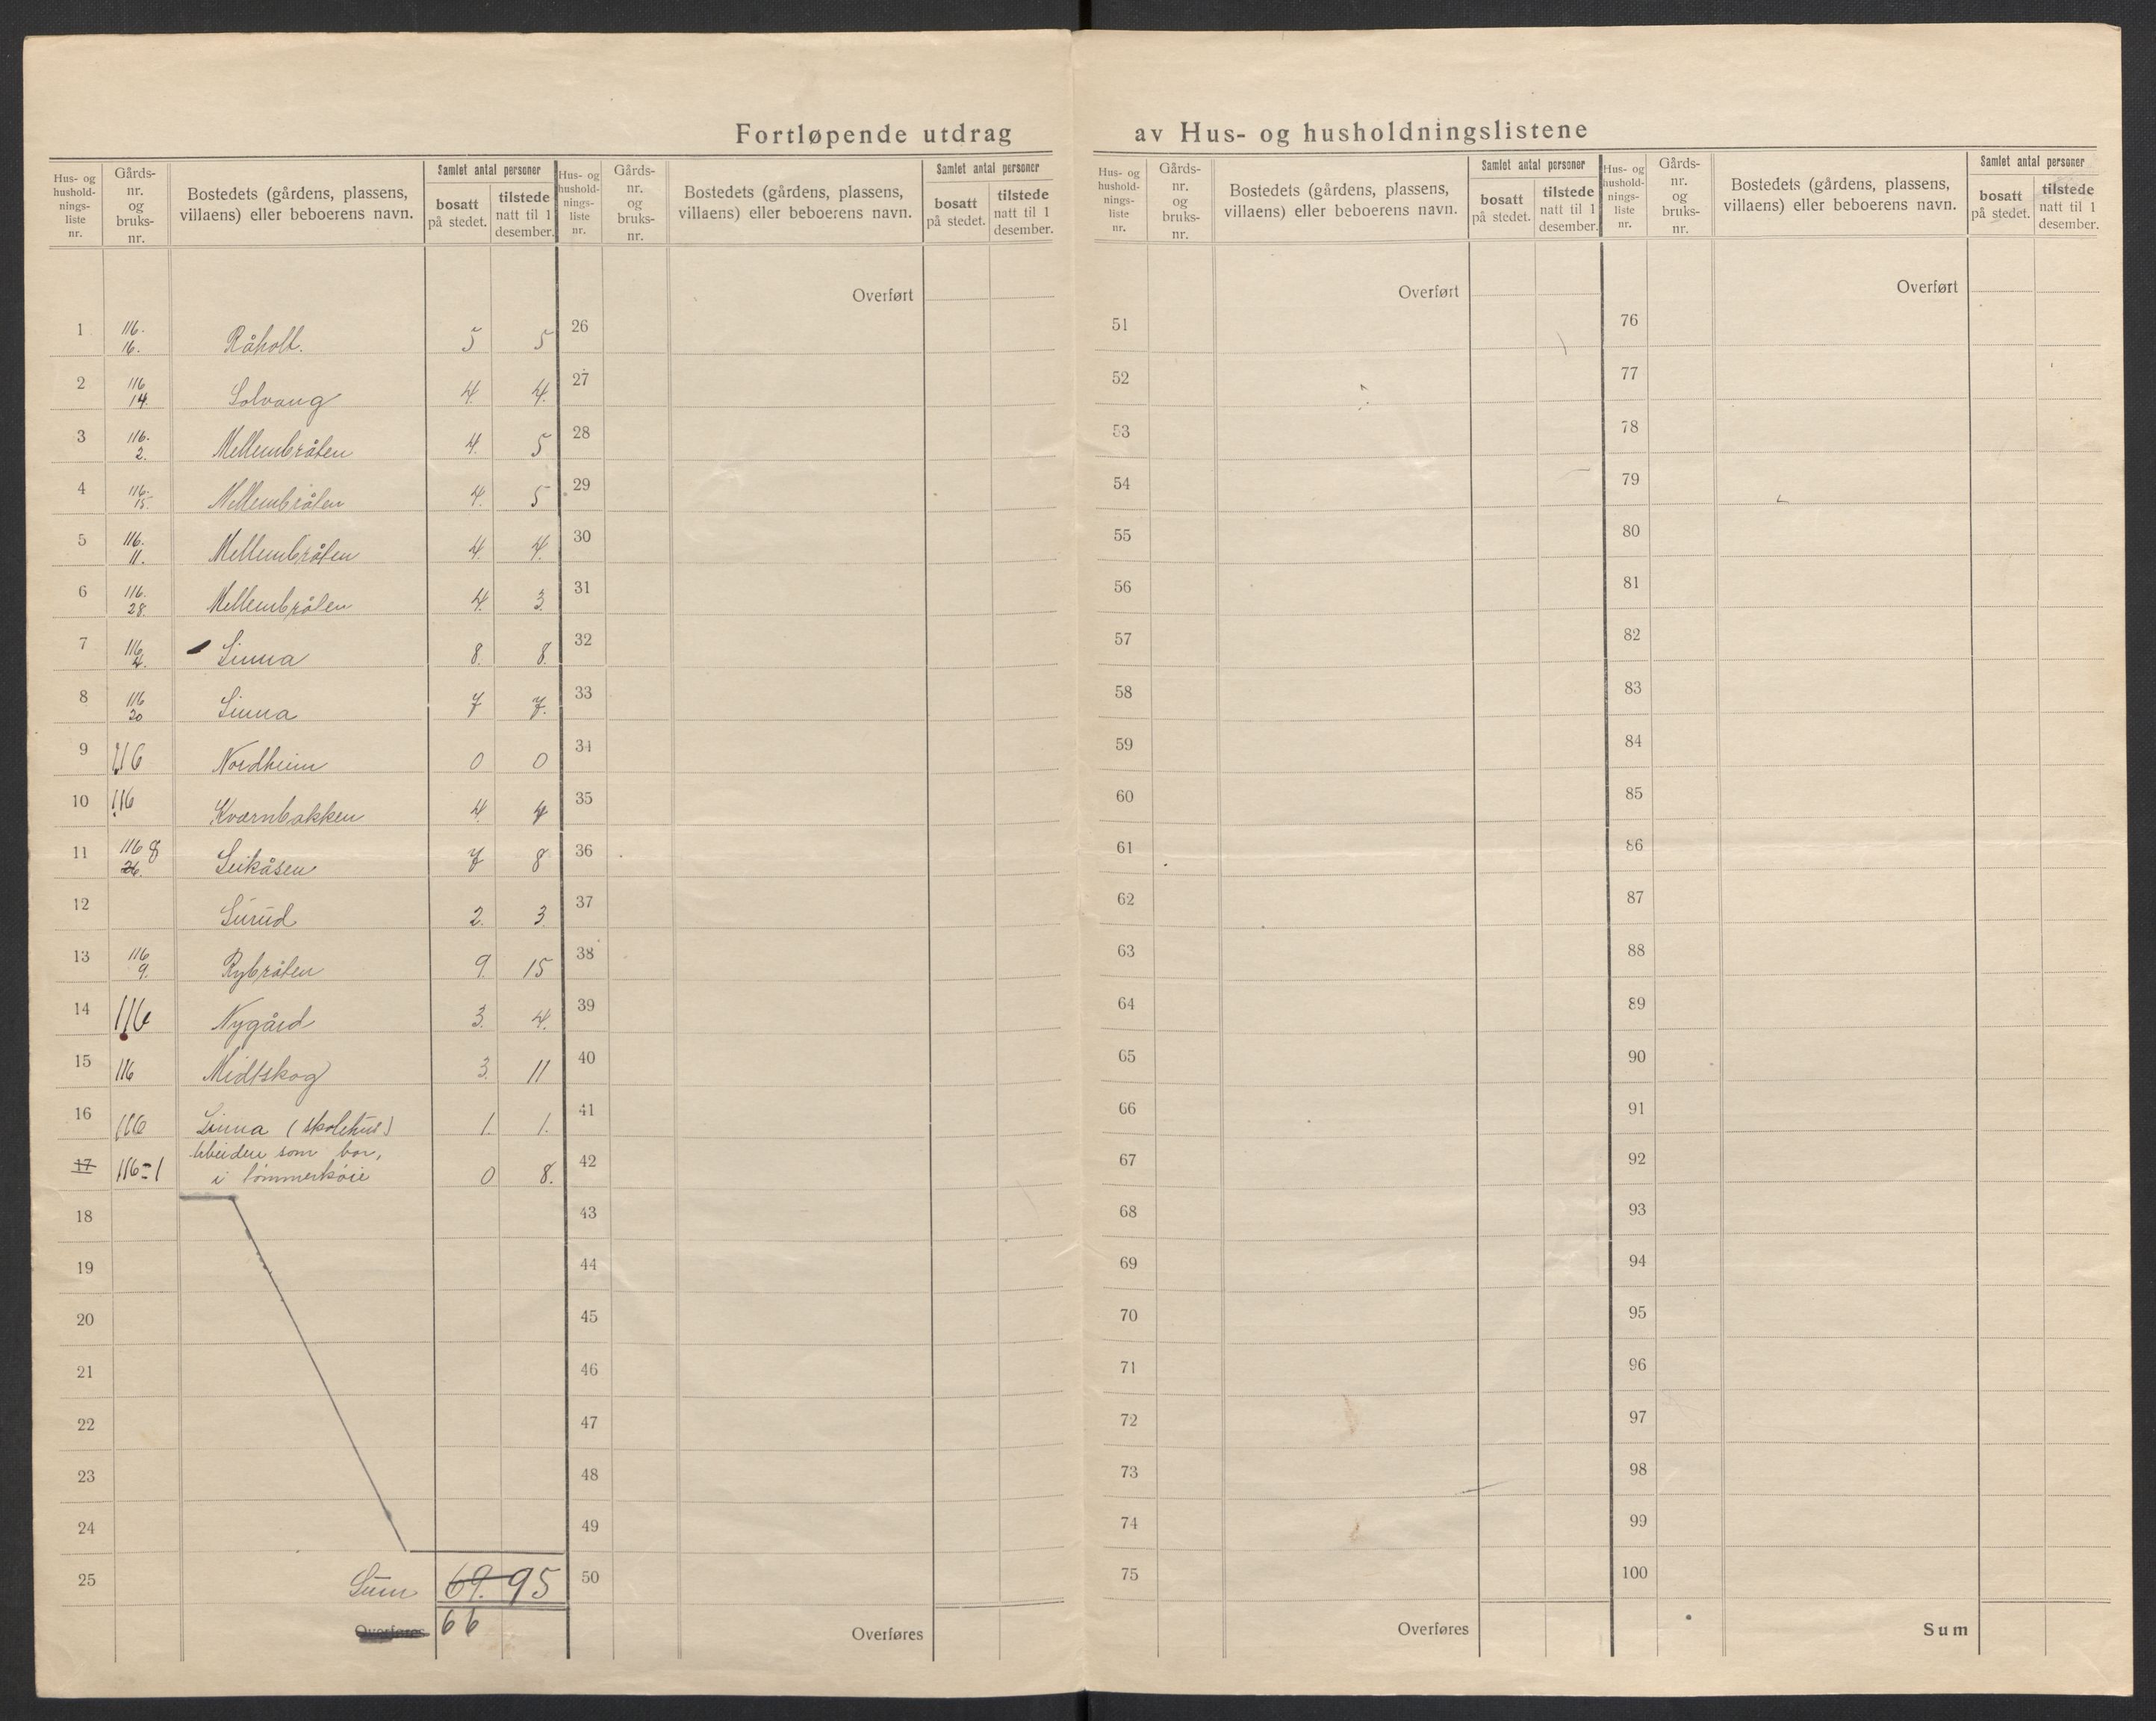 Fortløpende utdrag av Hus- og husholdningslistene
Hus- og hushold- nings- liste nr. | Gårds- nr. og bruks- nr. | Bostedets (gårdens, plassens, villaens) eller beboerens navn. | Samlet antal personer | bosatt på stedet. | tilstede natt til 1 desember.
1 | 116. 16. | Råholt. | 5 | 5
2 | 116 14. | Solvang | 4. | 4.
3 | 116. 2. | Mellembråten | 4. | 5
4 | 116. 15. | Mellembråten | 4. | 5
5 | 116. 11. | Mellembråten | 4. | 4.
6 | 116. 28. | Mellembråten | 4. | 3.
7 | 116 4. | Linna | 8. | 8.
8 | 116 20 | Linna | 7 | 7.
9 | 116 | Nordheim | 0 | 0
10 | 116 | Kværnbakken | 4. | 4
11 | 116 8 26. | Leikåsen | 7 | 8
12 | Surud | 2. | 3
13 | 116 9. | Rybråten | 9. | 15
14 | 116 | Nygård | 3. | 4.
15 | 116 | Midtskog | 3. | 11
16 | 116 | Linna (skolehus) | 1. | 1.
17 | 116=1 | som bor, i tømmerkøie | 0 | 8.
18
19
20
21
22
23
24
25 | Sum | 69. | 95
Overføres | 66
Hus- og hushold- nings- liste nr. | Gårds- nr. og bruks- nr. | Bostedets (gårdens, plassens, villaens) eller beboerens navn. | Samlet antal personer | bosatt på stedet. | tilstede natt til 1 desember.
Overført
26
27
28
29
30
31
32
33
34
35
36
37
38
39
40
41
42
43
44
45
46
47
48
49
50
Overføres
Hus- og hushold- nings- liste nr. | Gårds- nr. og bruks- nr. | Bostedets (gårdens, plassens, villaens) eller beboerens navn. | Samlet antal personer | bosatt på stedet. | tilstede natt til 1 desember.
Overført
51
52
53
54
55
56
57
58
59
60
61
62
63
64
65
66
67
68
69
70
71
72
73
74
75
Overføres
Hus- og hushold- nings- liste nr. | Gårds- nr. og bruks- nr. | Bostedets (gårdens, plassens, villaens) eller beboerens navn. | Samlet antal personer | bosatt på stedet. | tilstede natt til 1 desember.
Overført
76
77
78
79
80
81
82
83
84
85
86
87
88
89
90
91
92
93
94
95
96
97
98
99
100
Sum